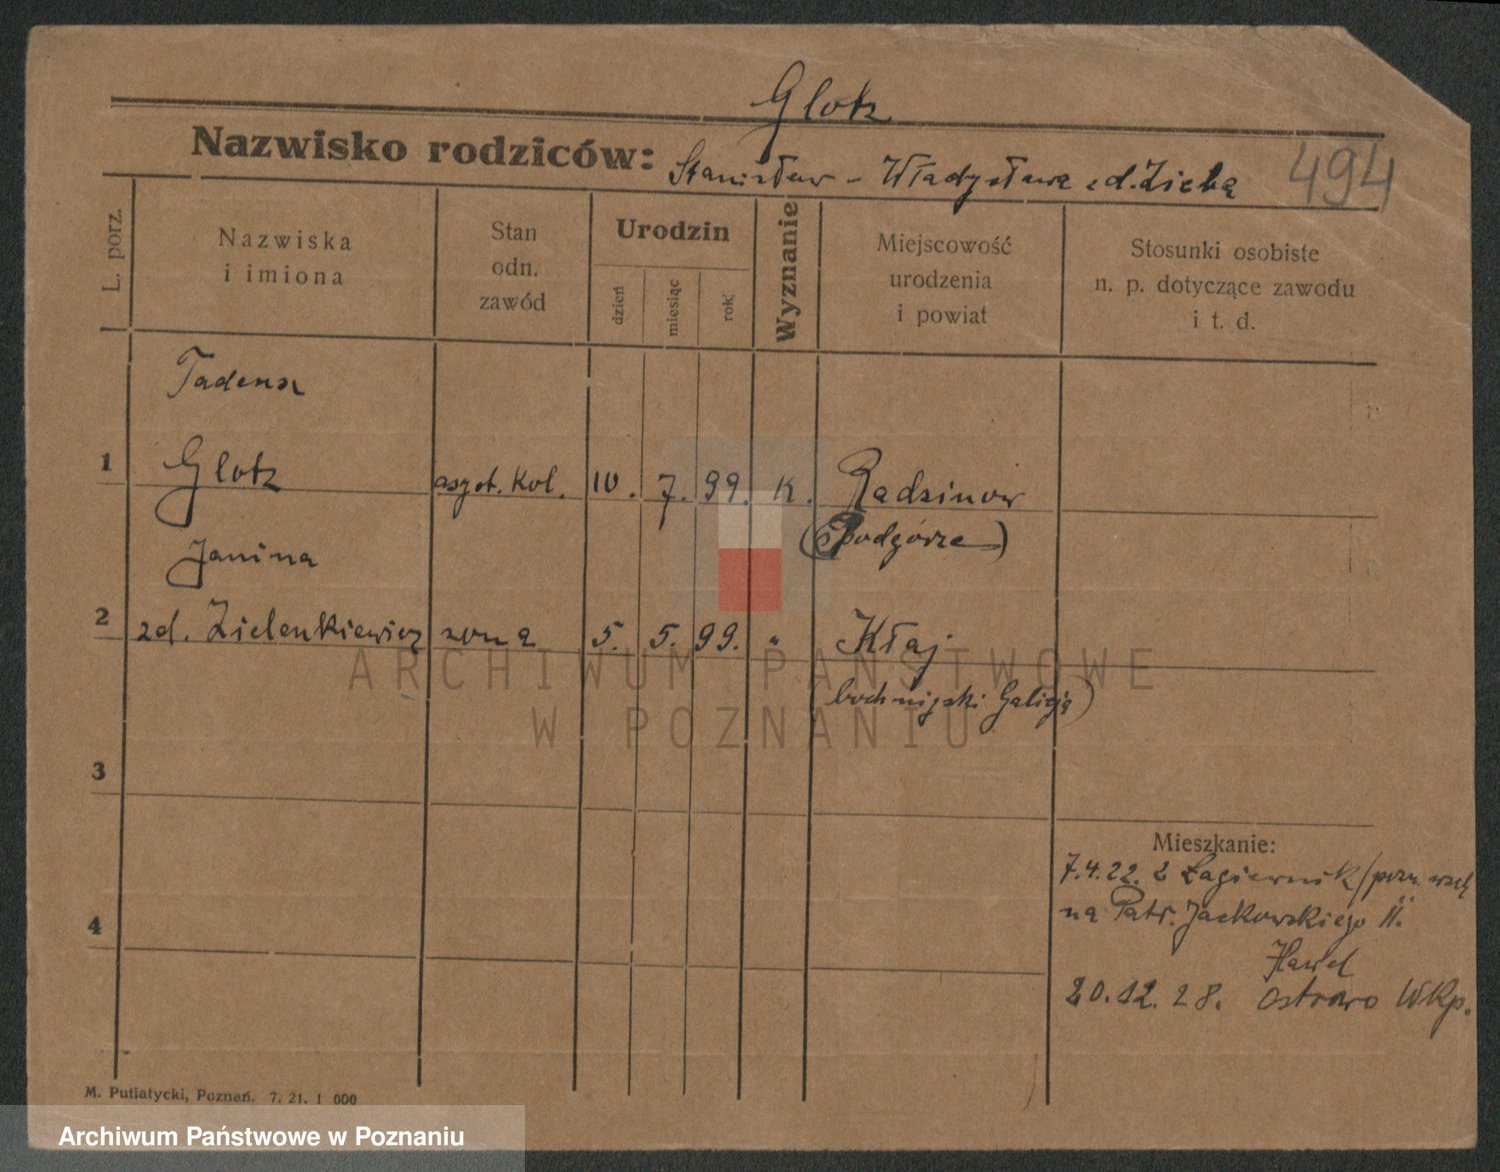 Glotz
Nazwisko rodziców: Stanisław - Władysława z d. Zięba
494
L. porz.
Nazwiska
i imiona
Stan
odn.
zawód
Urodzin
dzień
miesiąc
rok
Wyznanie
Miejscowość
urodzenia
i powiat
Stosunki osobiste
n. p. dotyczące zawodu
i t. d.
Tadeusz
1 Glotz asyst. kol. 10. 7. 99. k. Radzinow
(Podgórze)
Janina
2 zd. Zielenkiewicz żona 5. 5. 99. " Kłaj
(bochnijski Galicja)
ARCHIWUM PAŃSTWOWE
W POZNANIU
3
4
Mieszkanie:
7.4.22. z pozn. wsch
na Patr. Jackowskiego 11.
Hawel
20.12.28. Ostrowo Wkp.
M. Putiatycki, Poznań. 7. 21. 1 000
Archiwum Państwowe w Poznaniu